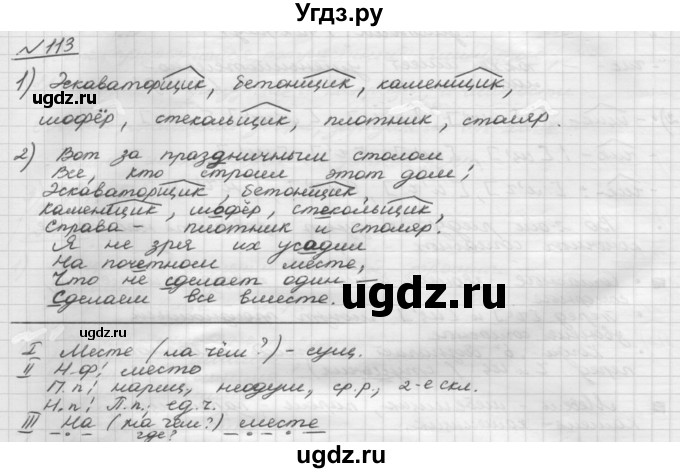 Угдз.ру
№ 113
1) Эскаваторщик, бетонщик, каменщик,
шофёр, стекольщик, плотник, столяр.
2) Вот за праздничным столом
Все, кто строил этот дом:
Эскаваторщик, бетонщик,
Каменщик, шофёр, стекольщик,
Справа – плотник и столяр.
Я не зря их усадил
На почётном месте,
Что не сделает один –
Сделаем все вместе.
I Месте (на чём?) – сущ.
II Н.ф: место
П.п: нариц, неодуш, ср.р, 2-е скл.
Н.п: П.п; ед.ч.
III На (на чём?) месте
где?
ugdz.ru
ugdz.ru
ugdz.ru
ugdz.ru
ugdz.ru
ugdz.ru
Угдз.ру